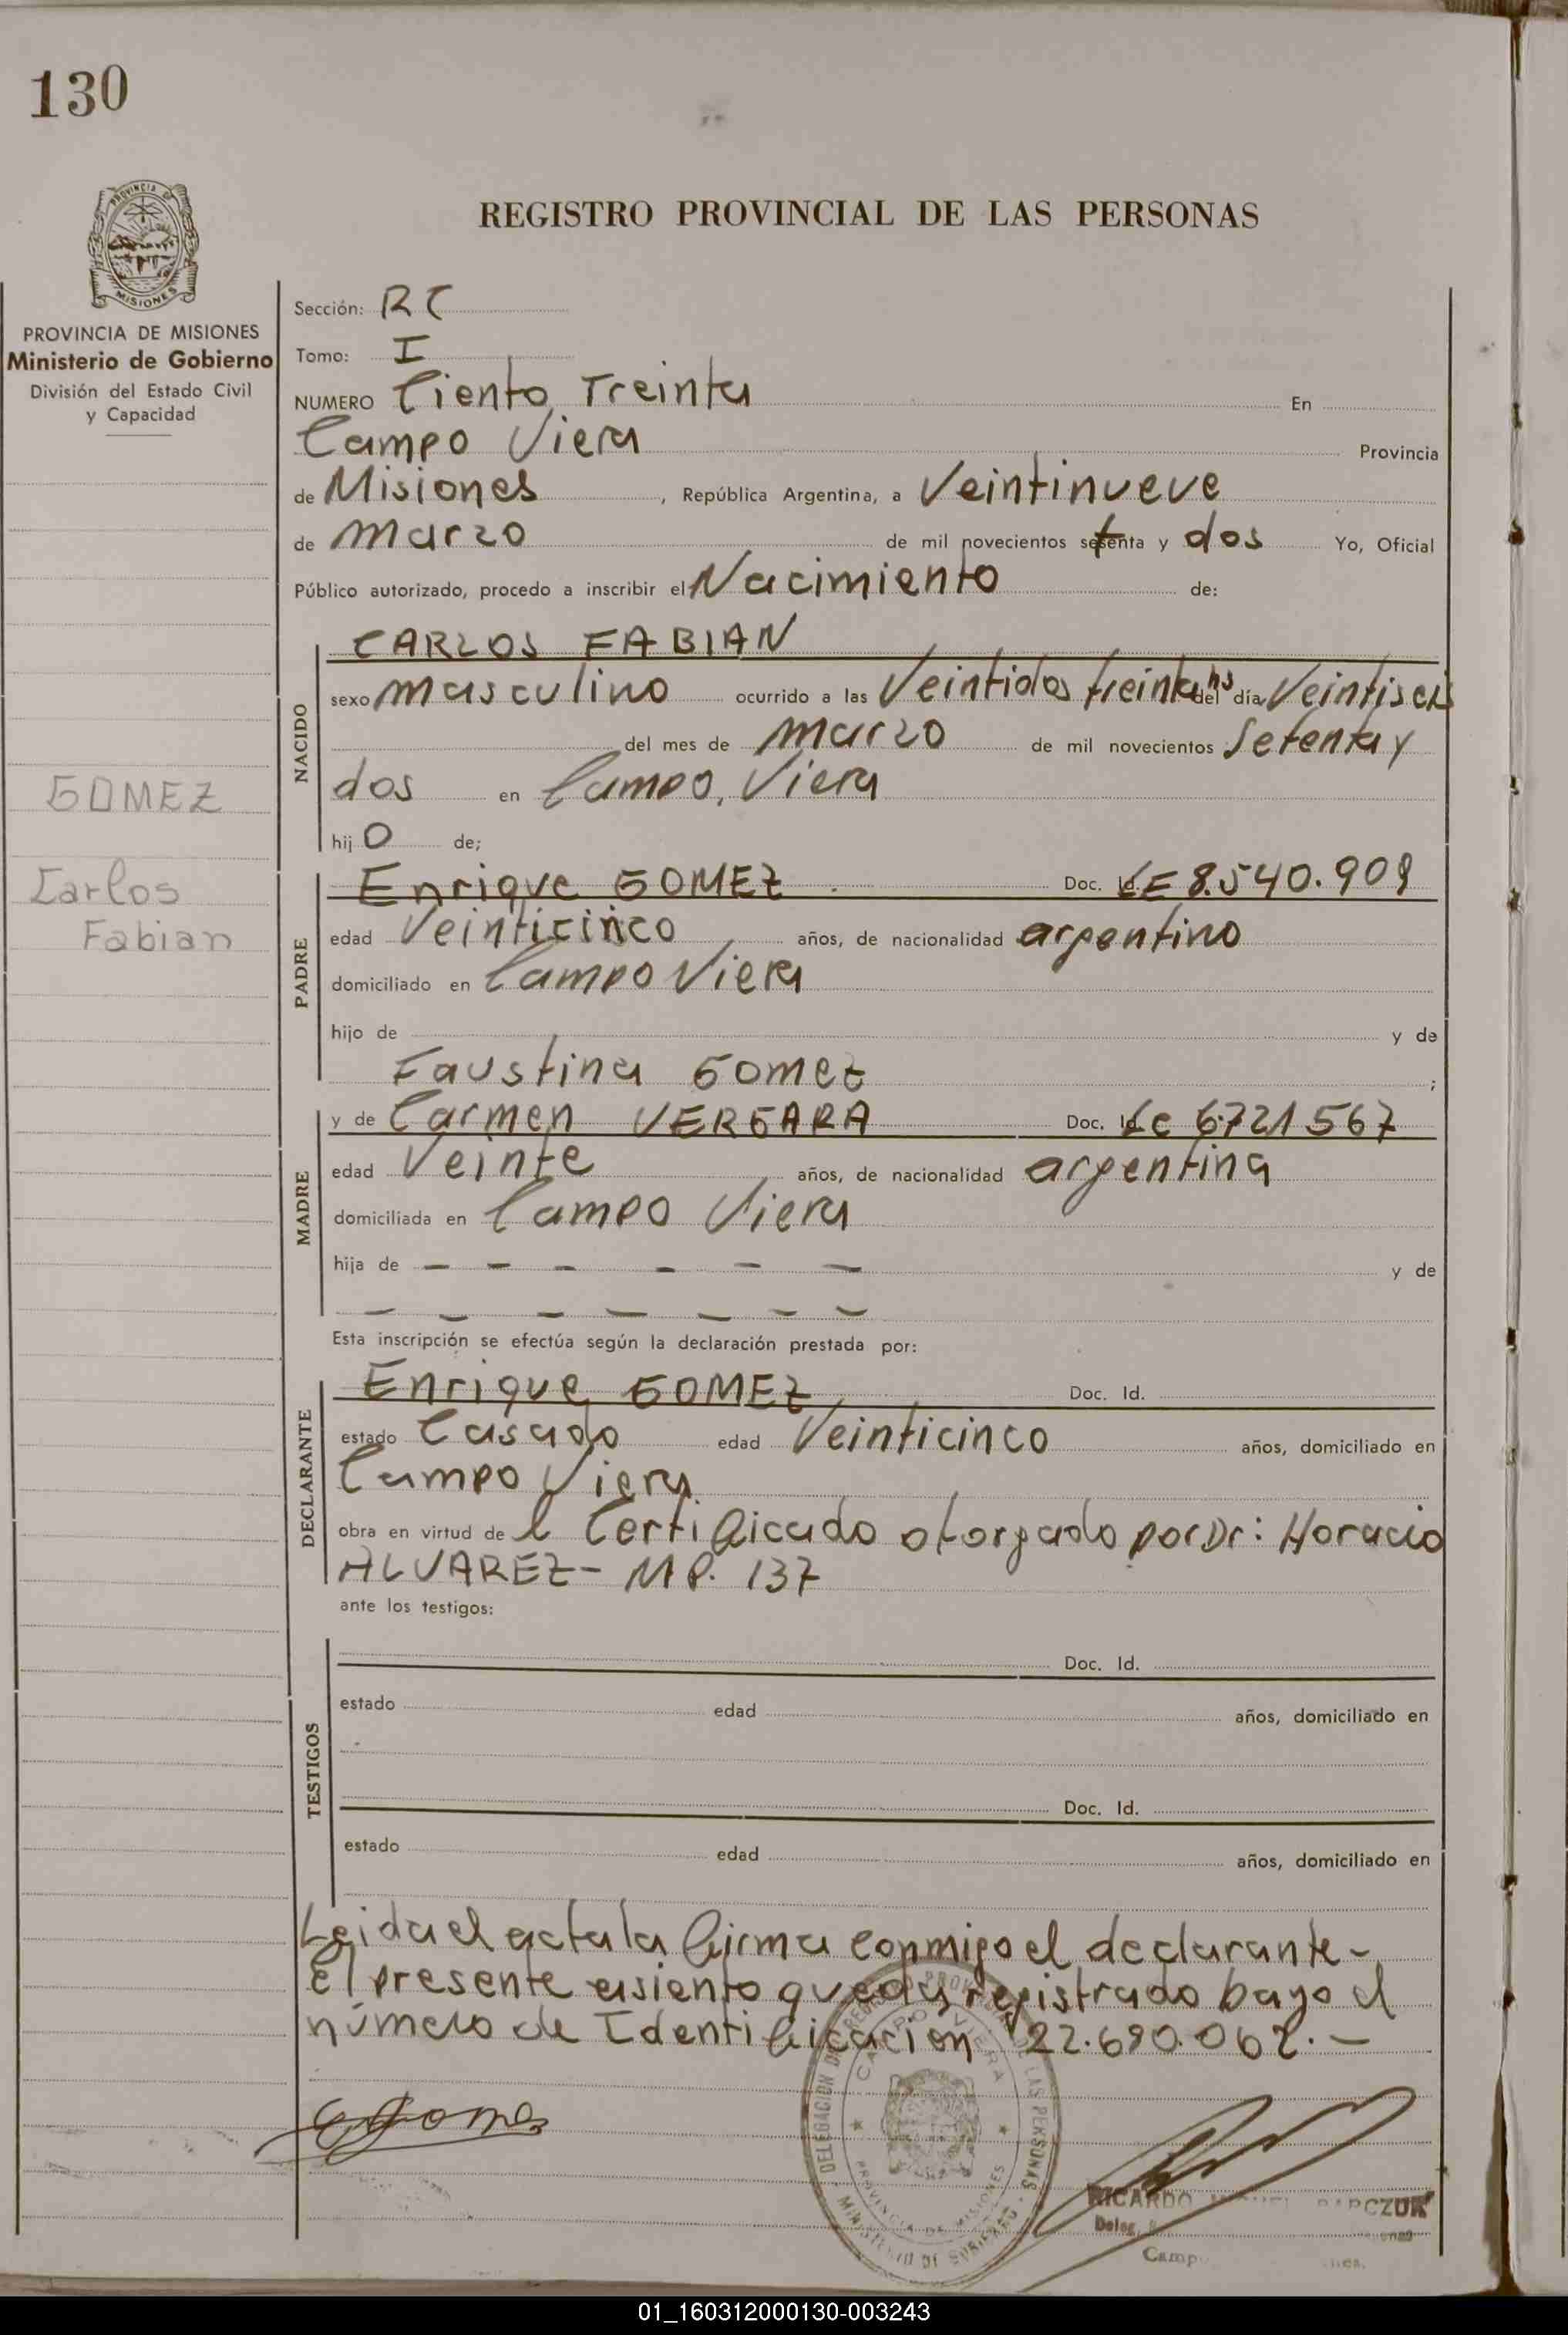 130
PROVINCIA DE
MISIONES
PROVINCIA DE MISIONES
Ministerio de Gobierno
División del Estado Civil
y Capacidad
REGISTRO PROVINCIAL DE LAS PERSONAS
Sección: RC
Tomo: I
NUMERO Ciento Treinta En
Campo Viera Provincia
de Misiones, República Argentina, a Veintinueve
de marzo de mil novecientos setenta y dos Yo, Oficial
Público autorizado, procedo a inscribir el Nacimiento de:
NACIDO
CARLOS FABIAN
sexo masculino ocurrido a las Veintidos treinta hs del día Veintiseis
del mes de marzo de mil novecientos Setenta y
dos en Campo, Viera
hijo de;
GOMEZ
Carlos
Fabian
PADRE
Enrique GOMEZ Doc. Id. LE 8.540.909
edad Veinticinco años, de nacionalidad argentino
domiciliado en Campo Viera
hijo de y de
Faustina Gomez ;
MADRE
y de Carmen VERGARA Doc. Id. LC 6.721567
edad Veinte años, de nacionalidad argentina
domiciliada en Campo Viera
hija de - - - - - - y de
- - - - - - -
Esta inscripción se efectúa según la declaración prestada por:
DECLARANTE
Enrique GOMEZ Doc. Id.
estado Casado edad Veinticinco años, domiciliado en
Campo Viera
obra en virtud del Certificado otorgado por Dr: Horacio
ALVAREZ- M.P. 137
ante los testigos:
TESTIGOS
Doc. Id.
estado edad años, domiciliado en
Doc. Id.
estado edad años, domiciliado en
Leida el acta la firma conmigo el declarante -
el presente asiento queda registrado bajo el
número de Identificación 22.690.062.-
EGomez
DELEGACION DEL REGISTRO PROVINCIAL DE LAS PERSONAS
CAMPO VIERA
PROVINCIA DE MISIONES
MINISTERIO DE GOBIERNO
RICARDO
Deleg.
Camp
01_160312000130-003243